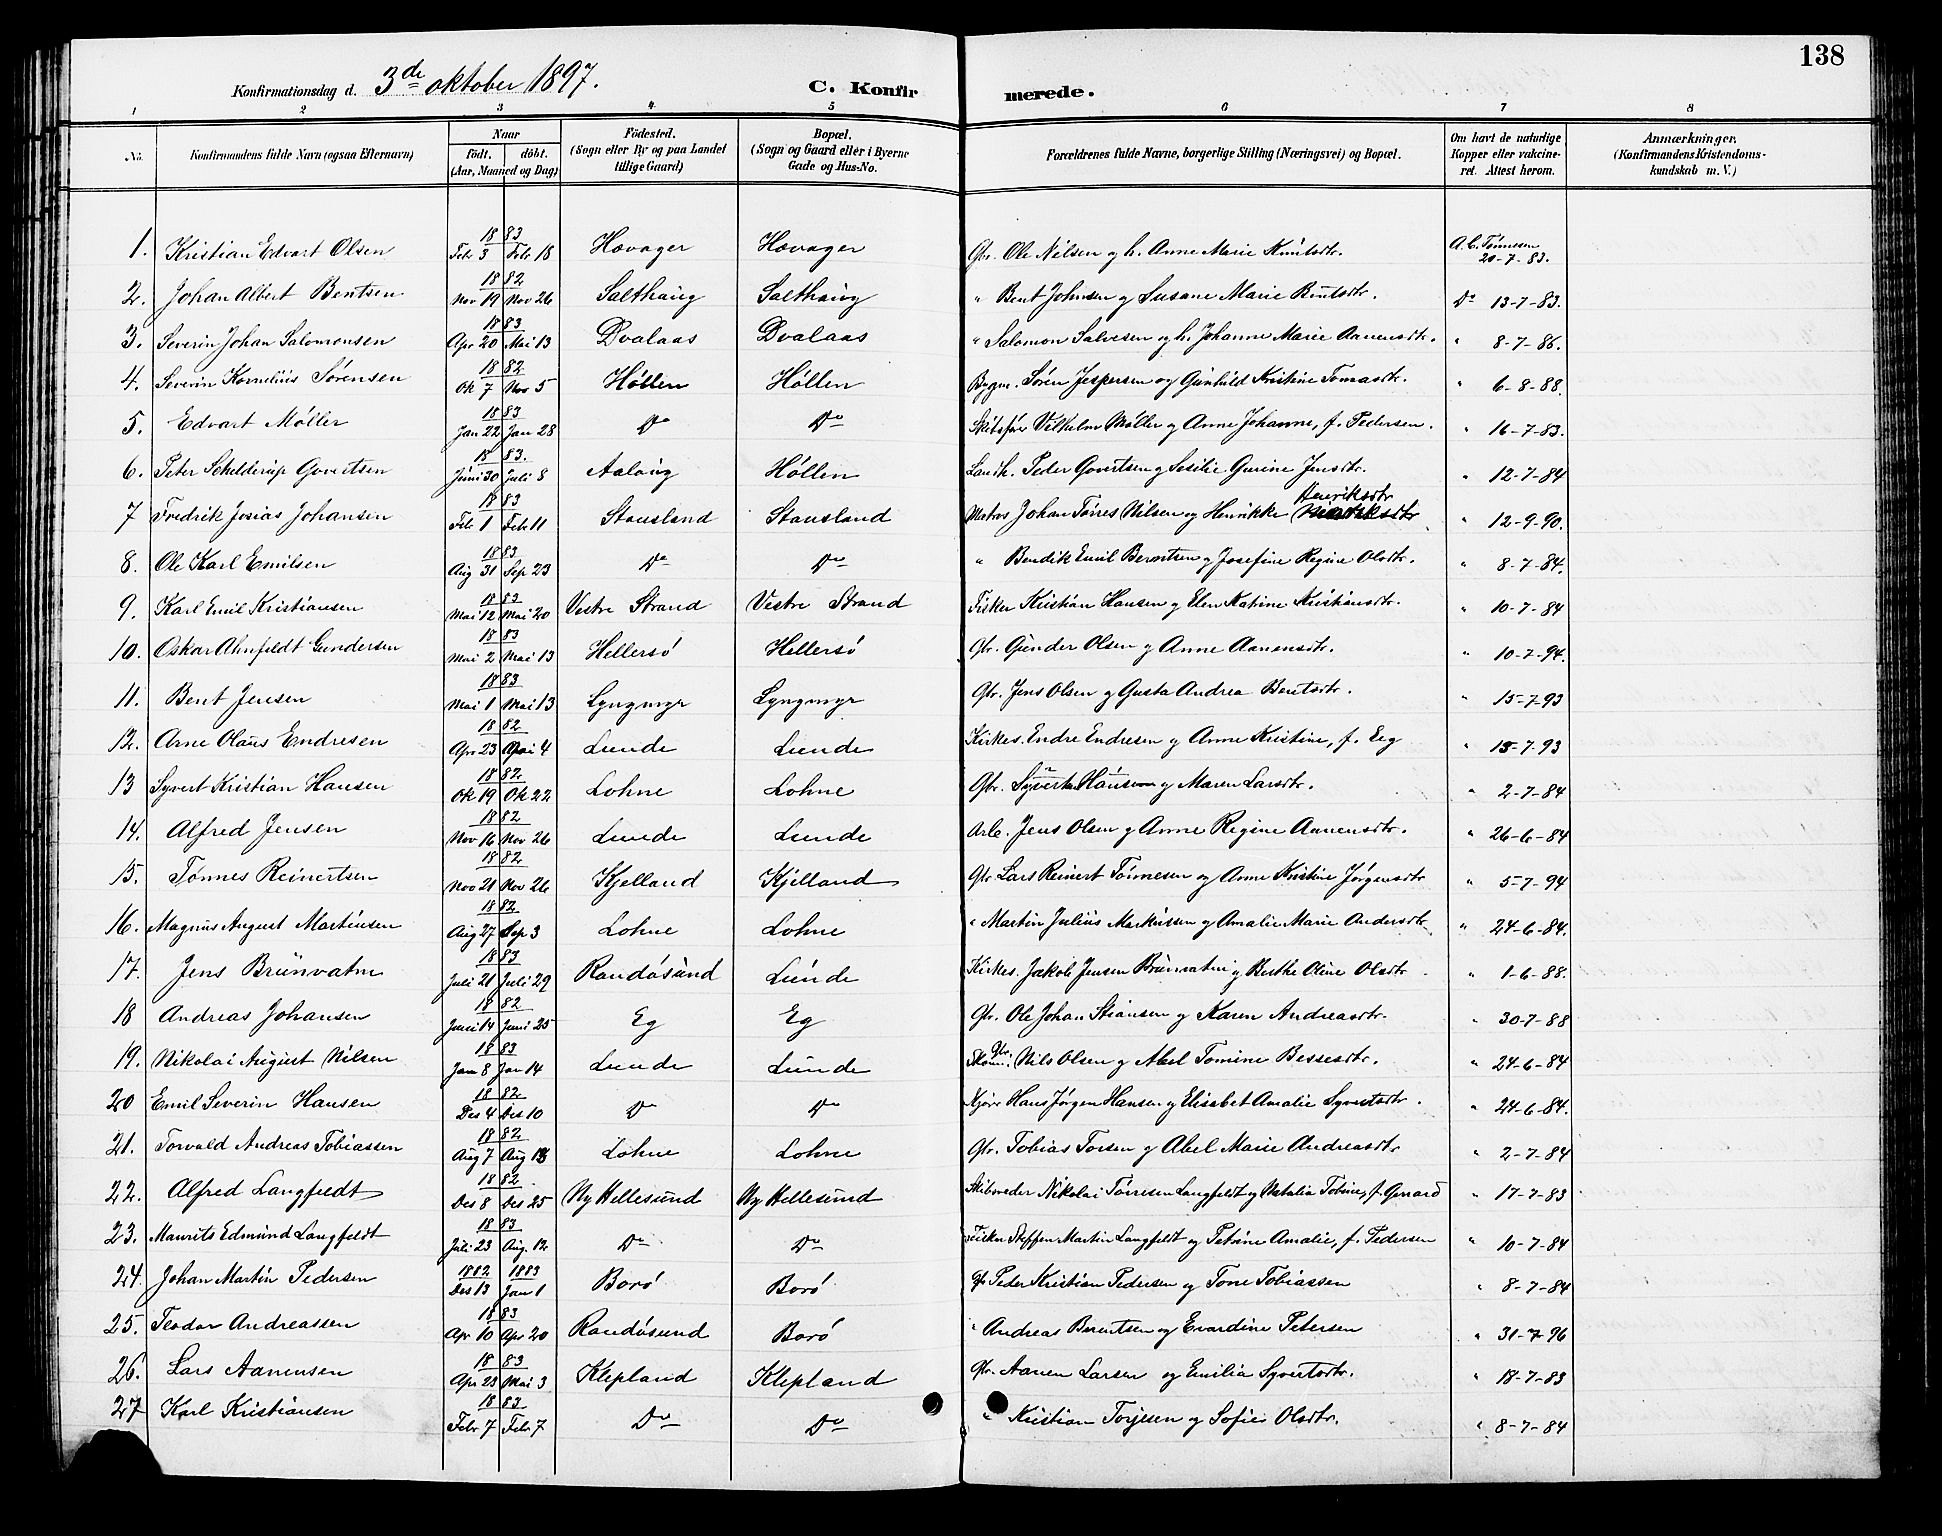 138
Konfirmationsdag d. 3de oktober 1897. C. Konfirmerede.
1 2 3 4 5 6 7 8
No. Konfirmandens fulde Navn (ogsaa Efternavn) Naar födt. döbt. (Aar, Maaned og Dag) Födested. (Sogn eller By og paa Landet tillige Gaard) Bopæl. (Sogn og Gaard eller i Byerne Gade og Hus-No. Forældrenes fulde Navne, borgerlige Stilling (Næringsvei) og Bopæl. Om havt de naturlige Kopper eller vakcineret. Attest herom. Anmærkninger. (Konfirmandens Kristendomskundskab m. V.)
1. Kristian Edvart Olsen 1883 Febr 3 Febr 18 Hovager Hovager Gbr. Ole Nilsen og h. Anne Marie Knutsdtr. A.C. Tønnesen 20-7-83.
2. Johan Albert Bentsen 1882 Nov 19 Nov 26 Salthaug Salthaug " Bent Johnsen og Susane Marie Bentsdtr. Do 13-7-83.
3. Severin Johan Salomonsen 1883 Apr 20 Mai 13 Dvalaas Dvalaas " Salomon Salvesen og h. Johanne Marie Aanensdtr. " 8-7-86.
4. Severin Kornelius Sørensen 1882 Ok 7 Nov 5 Høllen Høllen Bygm. Søren Jespersen og Gunhild Kristine Tomasdtr. " 6-8-88.
5. Edvart Møller 1883 Jan 22 Jan 28 Do Do Skibsfører Vilhelm Møller og Anne Johanne, f. Pedersen. " 16-7-83.
6. Peter Schilderup Govertsen 1883. Juni 30 Juli 8 Aalaug Høllen Landh. Peder Govertsen og Sesilie Gurine Jensdtr. " 12-7-84
7 Fredrik Josias Johansen 1883 Febr 1 Febr 11 Stausland Stausland Matros Johan Tønnes Nilsen og Henrikke Henriksdtr " 12-9-90.
8. Ole Karl Emilsen 1883 Aug 31 Sep 23 Do Do " Bendik Emil Berntsen og Josefine Regine Olsdtr. " 8-7-84.
9. Karl Emil Kristiansen 1883 Mai 12 Mai 20 Vestre Strand Vestre Strand Fisker Kristian Hansen og Elen Katrine Kristiansdtr. " 10-7-84
10. Oskar Ahnfeldt Gundersen 1883 Mai 2 Mai 13 Hellersø Hellersø Gbr. Gunder Olsen og Anne Aanensdtr. " 10-7-94.
11. Bent Jensen 1883 Mai 1 Mai 13 Lyngmyr Lyngmyr Gbr. Jens Olsen og Gusta Andrea Bentsdtr. " 15-7-93
12. Arne Olaus Endresen 1882 Apr 23 Mai 4 Lunde Lunde Kirkes. Endre Endresen og Anne Kristine, f. Eeg " 15-7-93
13 Syvert Kristian Hansen 1882. Ok 19 Ok 22 Lohne Lohne Gbr. Syvert Hansen og Maren Larsdtr. " 2-7-84
14. Alfred Jensen 1882 Nov 16 Nov 26 Lunde Lunde Arb. Jens Olsen og Anne Regine Aanensdtr. " 26-6-84
15. Tønnes Reinertsen 1882 Nov 21 Nov 26 Kjelland Kjelland Gbr Lars Reinert Tønnesen og Anne Kristine Jørgensdtr " 5-7-94
16. Magnus August Martinsen 1882 Aug 27 Sep 3 Lohne Lohne " Martin Julius Markussen og Amalie Marie Andersdtr. " 24-6-84.
17. Jens Brunvatne 1883 Juli 21 Juli 29 Randøsund Lunde Kirkes. Jakob Jensen Brunvatne og Berthe Oline Olsdtr. " 1-6-88.
18 Andreas Johansen 1882 Juni 14 Juni 25 Eg Eg Gbr. Ole Johan Stiansen og Karen Andreasdtr. " 30-7-88
19. Nikolai August Nilsen 1883 Jan 8 Jan 14 Lunde Lunde Gbr. Nils Olsen og Abel Tomine Bessesdtr. " 24-6-84
20 Emil Severin Hansen 1882 Des 4 Des 10 Do Do Hans Jørgen Hansen og Elisabet Amalie Syvertsdtr. " 24-6-84.
21. Torvald Andreas Tobiassen 1882 Aug 7 Aug 13 Lohne Lohne Gbr. Tobias Torsen og Abel Marie Andreasdtr " 2-7-84
22. Alfred Langfeldt 1882. Des 8 Des 25 Ny Hellesund Ny Hellesund Skibsreder Nikolai Tønnesen Langfeldt og Natalia Tobine, f. Gerrard " 17-7-83
23. Maurits Edmund Langfeldt 1883 Juli 23 Aug. 12 Do Do Fisker Steffen Martin Langfeldt og Petrine Amalie, f. Pedersen " 10-7-84
24. Johan Martin Pedersen 1882 1883 Des 13 Jan 1 Borø Borø Gbr Peder Kristian Pedersen og Tone Tobiassen " 8-7-84
25. Teodor Andreassen 1883 Apr 10 Apr 20 Randøsund Borø " Andreas Berntsen og Evardine Petersen " 31-7-96
26. Lars Aanensen 1883 Apr 23 Mai 3 Klepland Klepland Gbr. Aanen Larsen og Emilia Syvertsdtr. " 18-7-83
27 Karl Kristiansen 1883 Febr 7 Febr 7 Do Do " Kristian Torjesen og Sofie Olsdtr. " 8-7-84